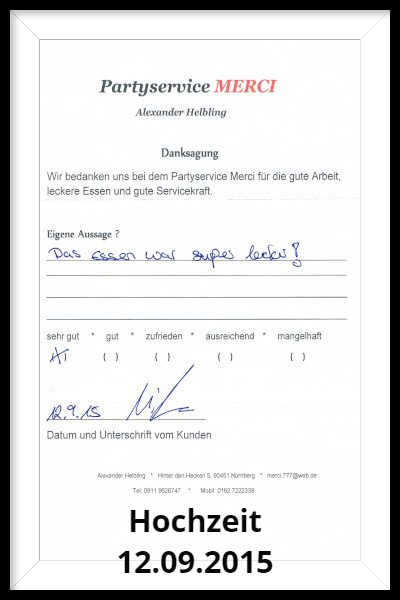 Partyservice MERCI
Alexander Helbling
Danksagung
Wir bedanken uns bei dem Partyservice Merci für die gute Arbeit,
leckere Essen und gute Servicekraft.
Eigene Aussage ?
Das essen war super lecker!
sehr gut * gut * zufrieden * ausreichend * mangelhaft
( ) ( ) ( ) ( )
12.9.15
Datum und Unterschrift vom Kunden
Alexander Helbling * Hinter den Hecken 5, 90451 Nürnberg * merci.777@web.de
Tel: 0911 9626747 * Mobil: 0162 7222339
Hochzeit
12.09.2015